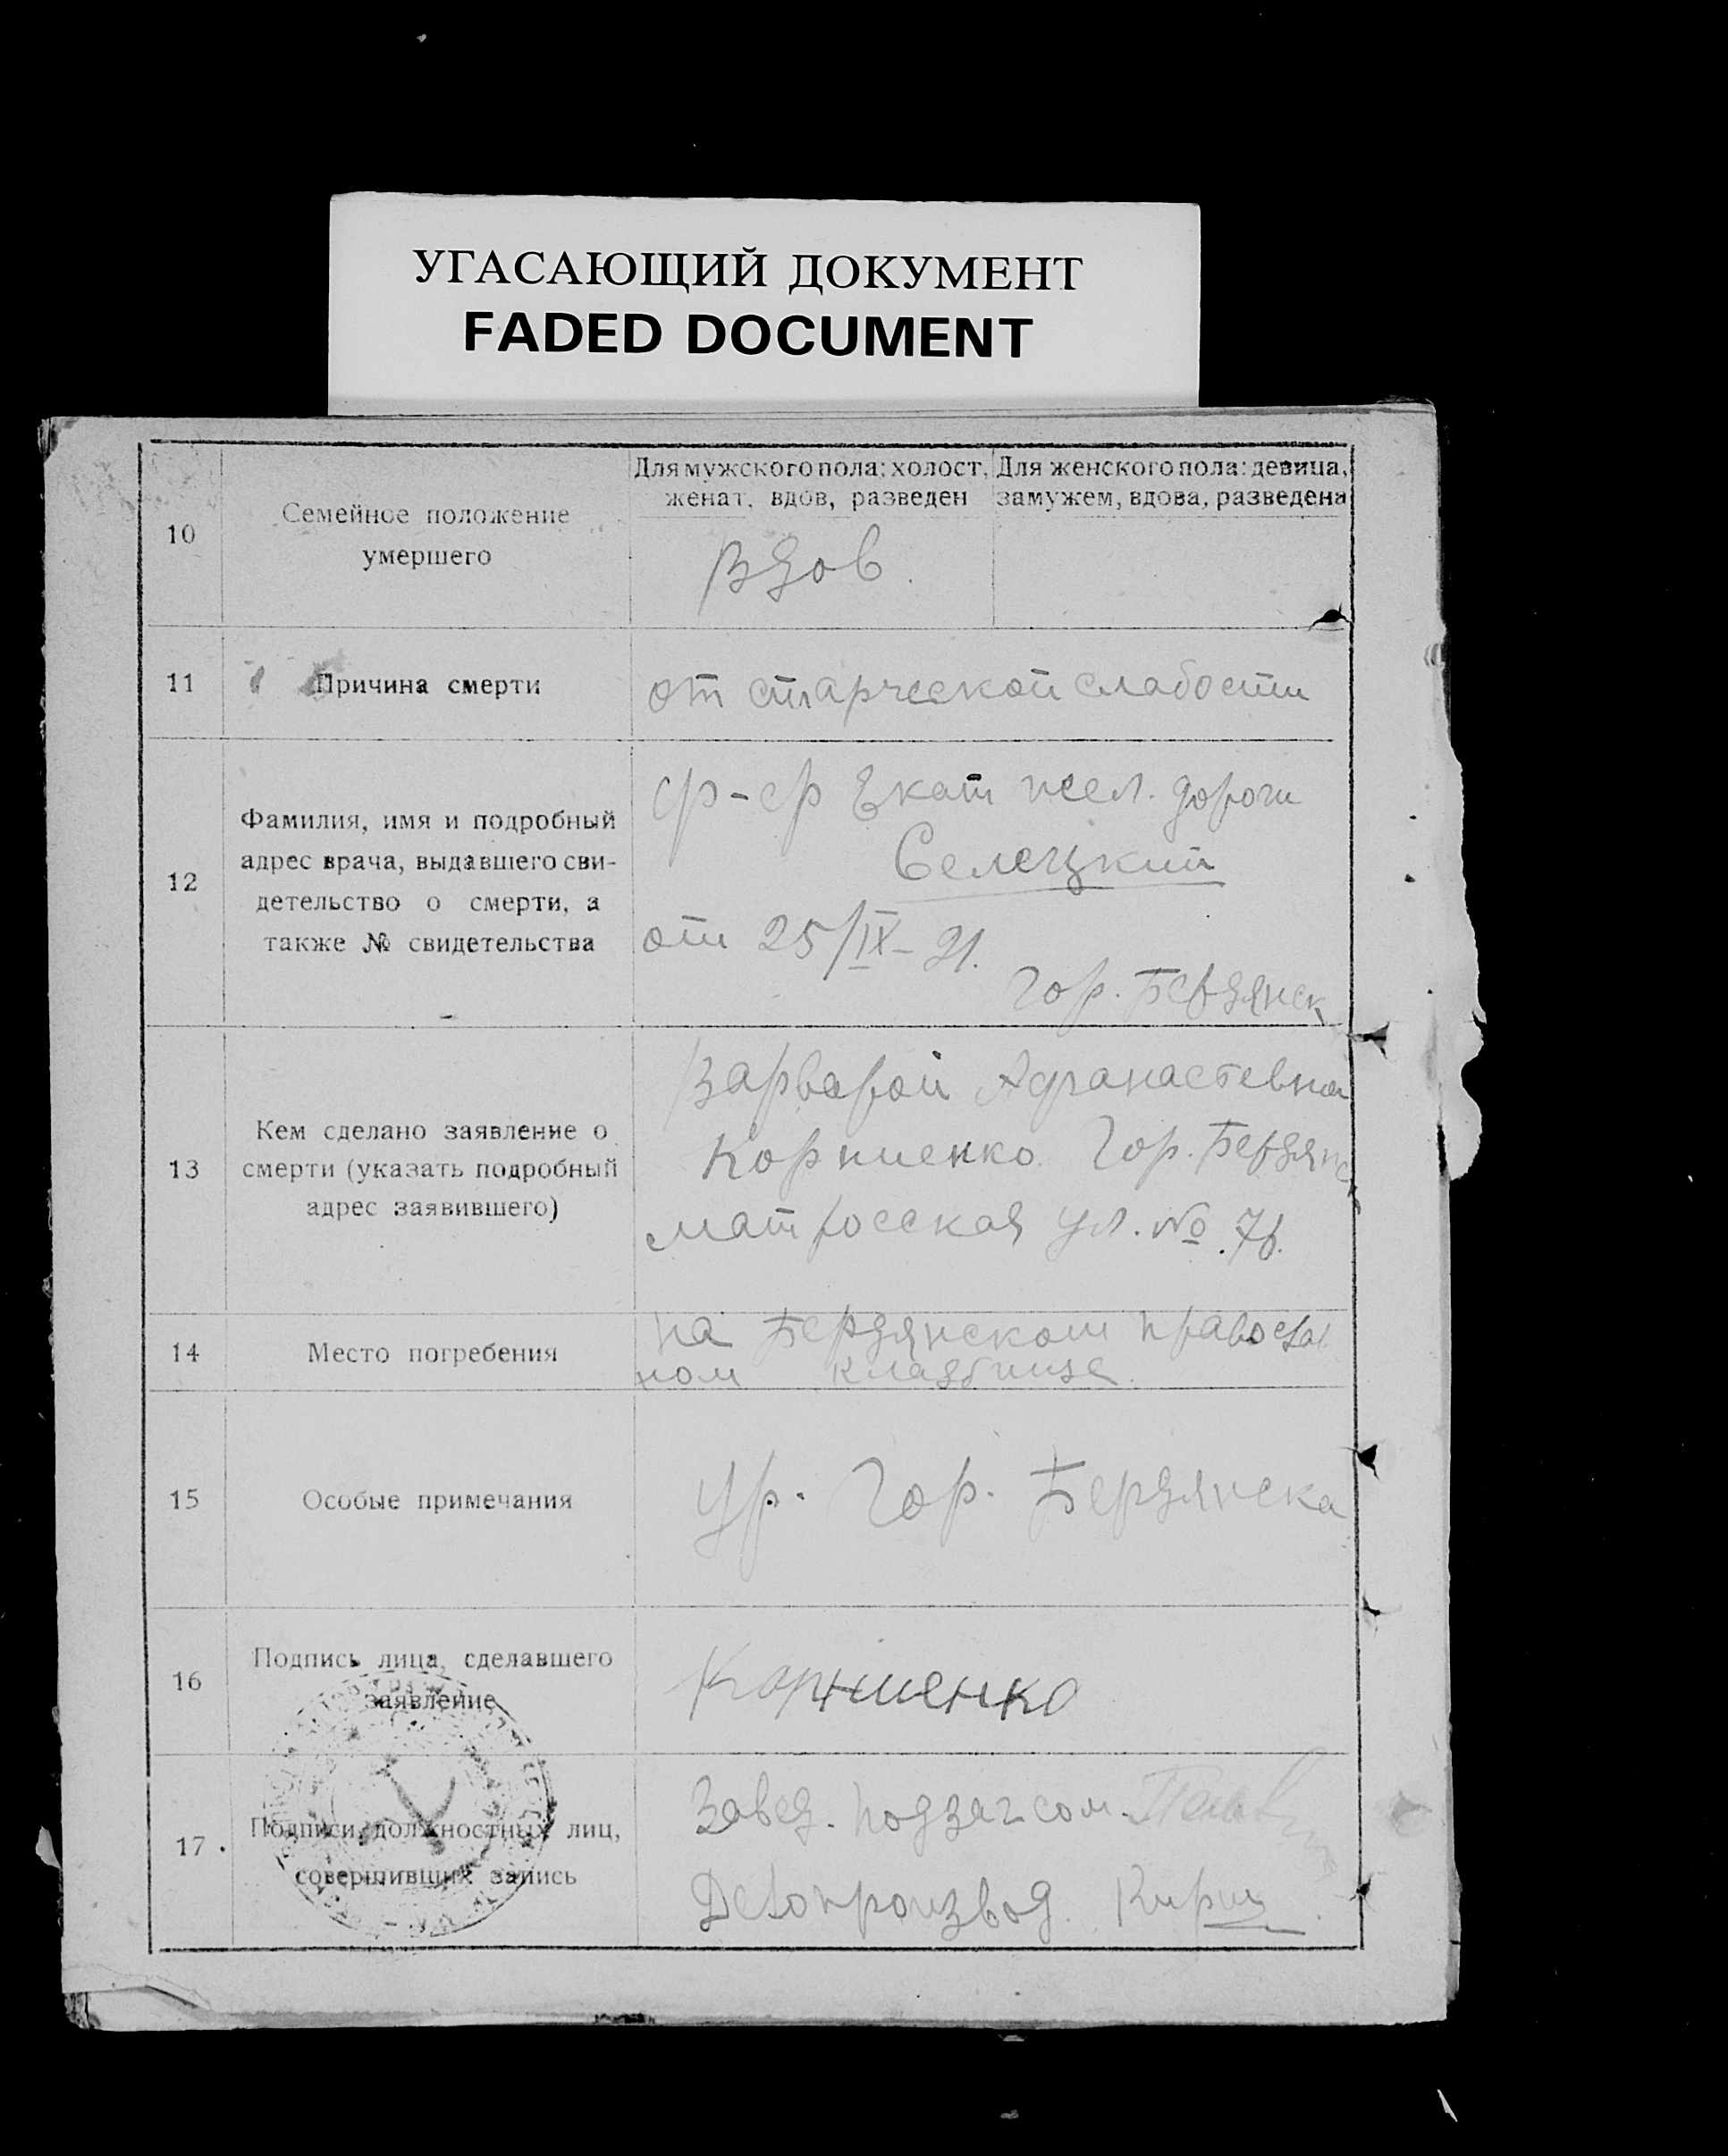 УГАСАЮЩИЙ ДОКУМЕНТ
FADED DOCUMENT
10
Семейное положение
умершего
Для мужского пола: холост,
женат, вдов, разведен
Для женского пола: девица,
замужем, вдова, разведена
Вдов.
11
Причина смерти
от старческой слабости
12
Фамилия, имя и подробный
адрес врача, выдавшего сви-
детельство о смерти, а
также № свидетельства
ф-ер Екат жел. дороги
Селецкий
от 25/IX-21.
Гор. Бердянск
13
Кем сделано заявление о
смерти (указать подробный
адрес заявившего)
Варварой Афанасьевна
Корниенко Гор. Бердянск
матросская ул. №
14
Место погребения
на Бердянском православ
ном кладбище.
15
Особые примечания
Ур. Гор. Бердянска
16
Подпись лица, сделавшего
заявление
Корниенко
17.
Подписи должностных лиц,
совершивших запись
Завед. подзагсом
Делопроизвод.